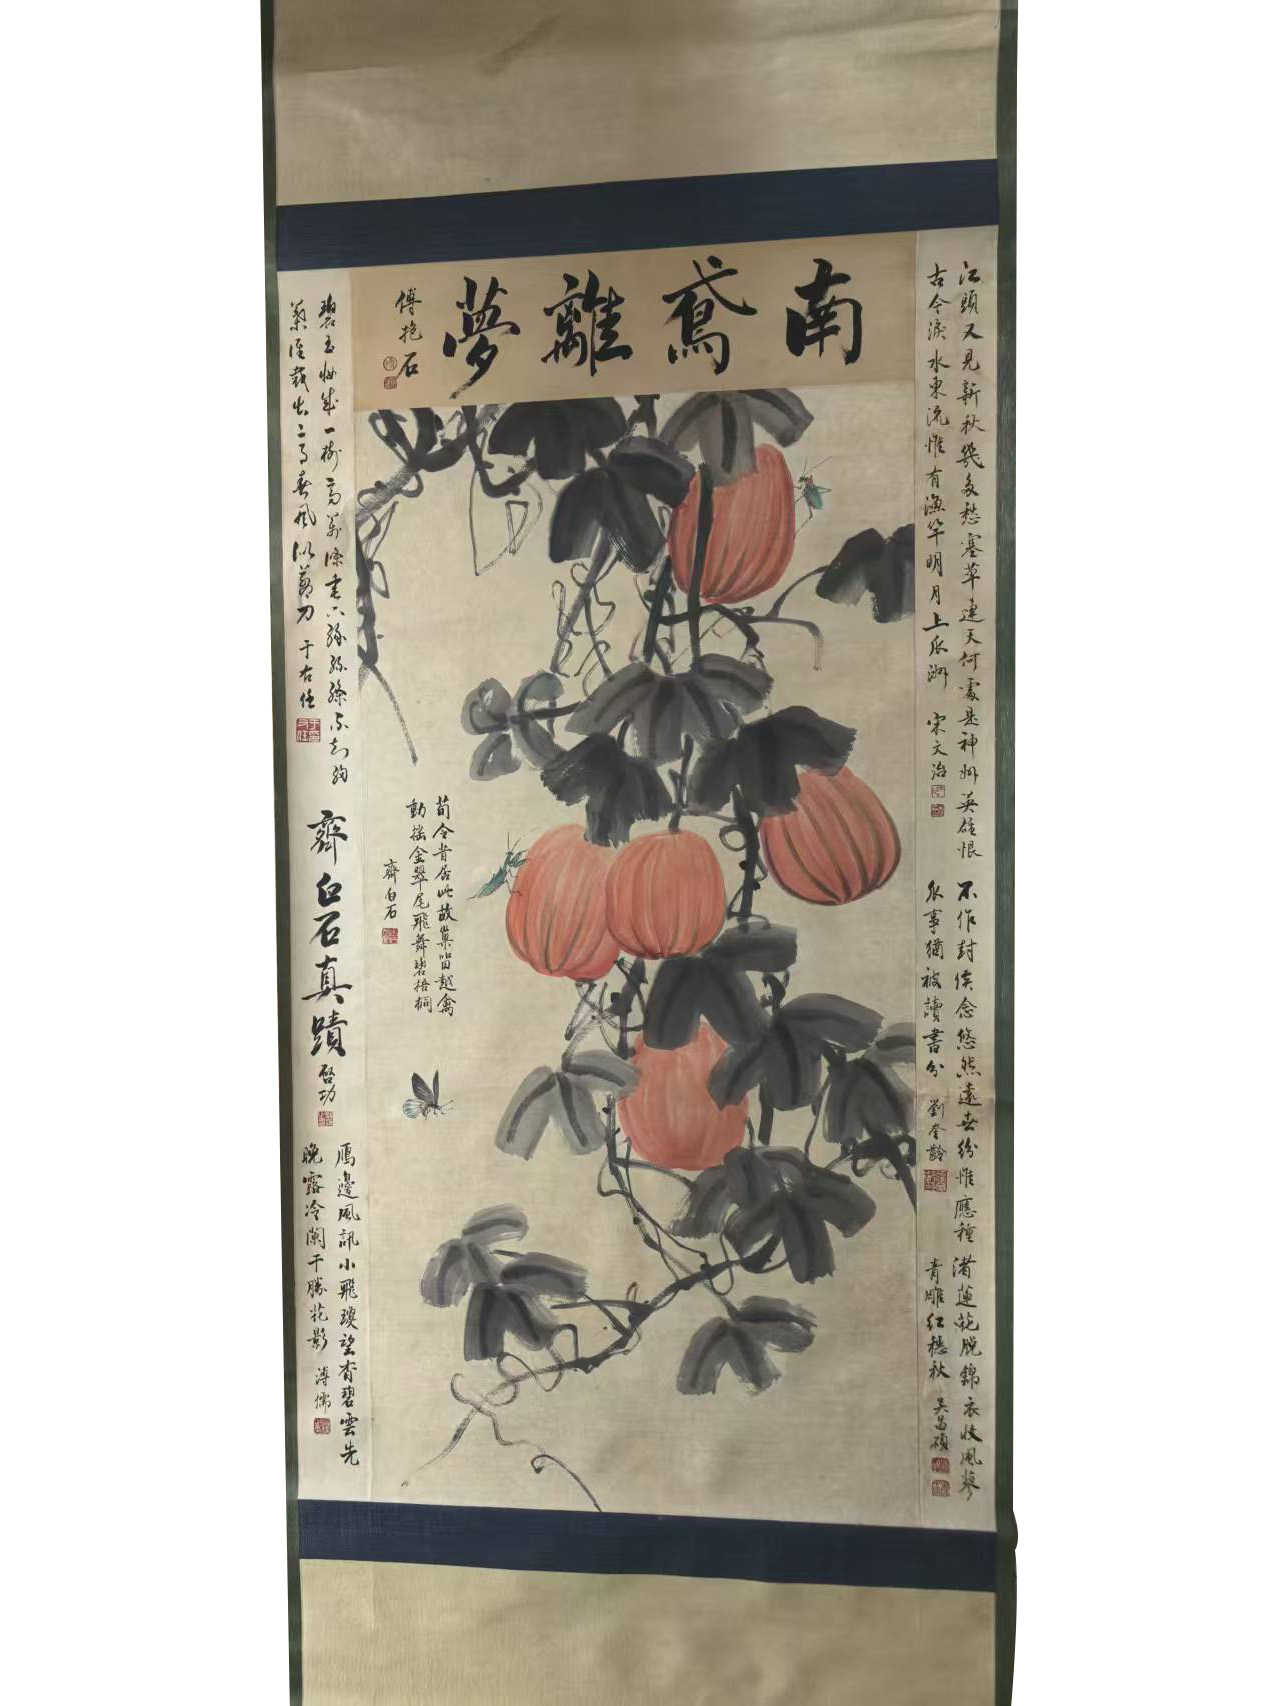 南鳶離夢
傅抱石
江頭又見新秋幾多愁塞草連天何處是神州英雄恨
古今淚水東流惟有漁竿明月上瓜洲 宋文治
不作封侯念悠然遠世紛惟應種
瓜事猶被讀書分 劉奎齡
渚蓮花脫錦衣收風蓼
青雕紅穗秋 吳昌碩
荀令昔居此故巢留越禽
動搖金翠尾飛舞碧梧桐
齊白石
碧玉妝成一樹高萬條垂下綠絲絛不知細
葉誰裁出二月春風似剪刀 于右任
齊白石真蹟 啓功
鴈邊風訊小飛瓊望杳碧雲先
晚露冷闌干勝花影 溥儒